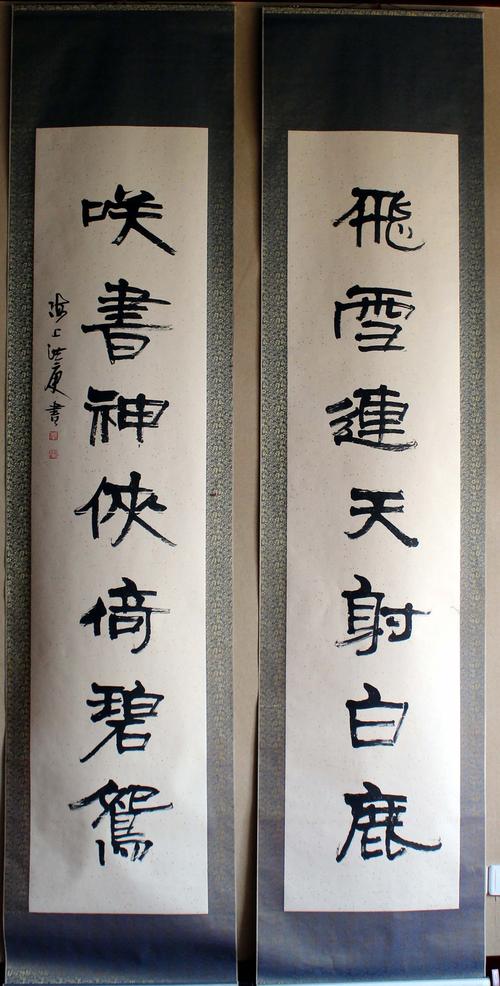 飛雪連天射白鹿
咲書神俠倚碧鴛
海上洪康書